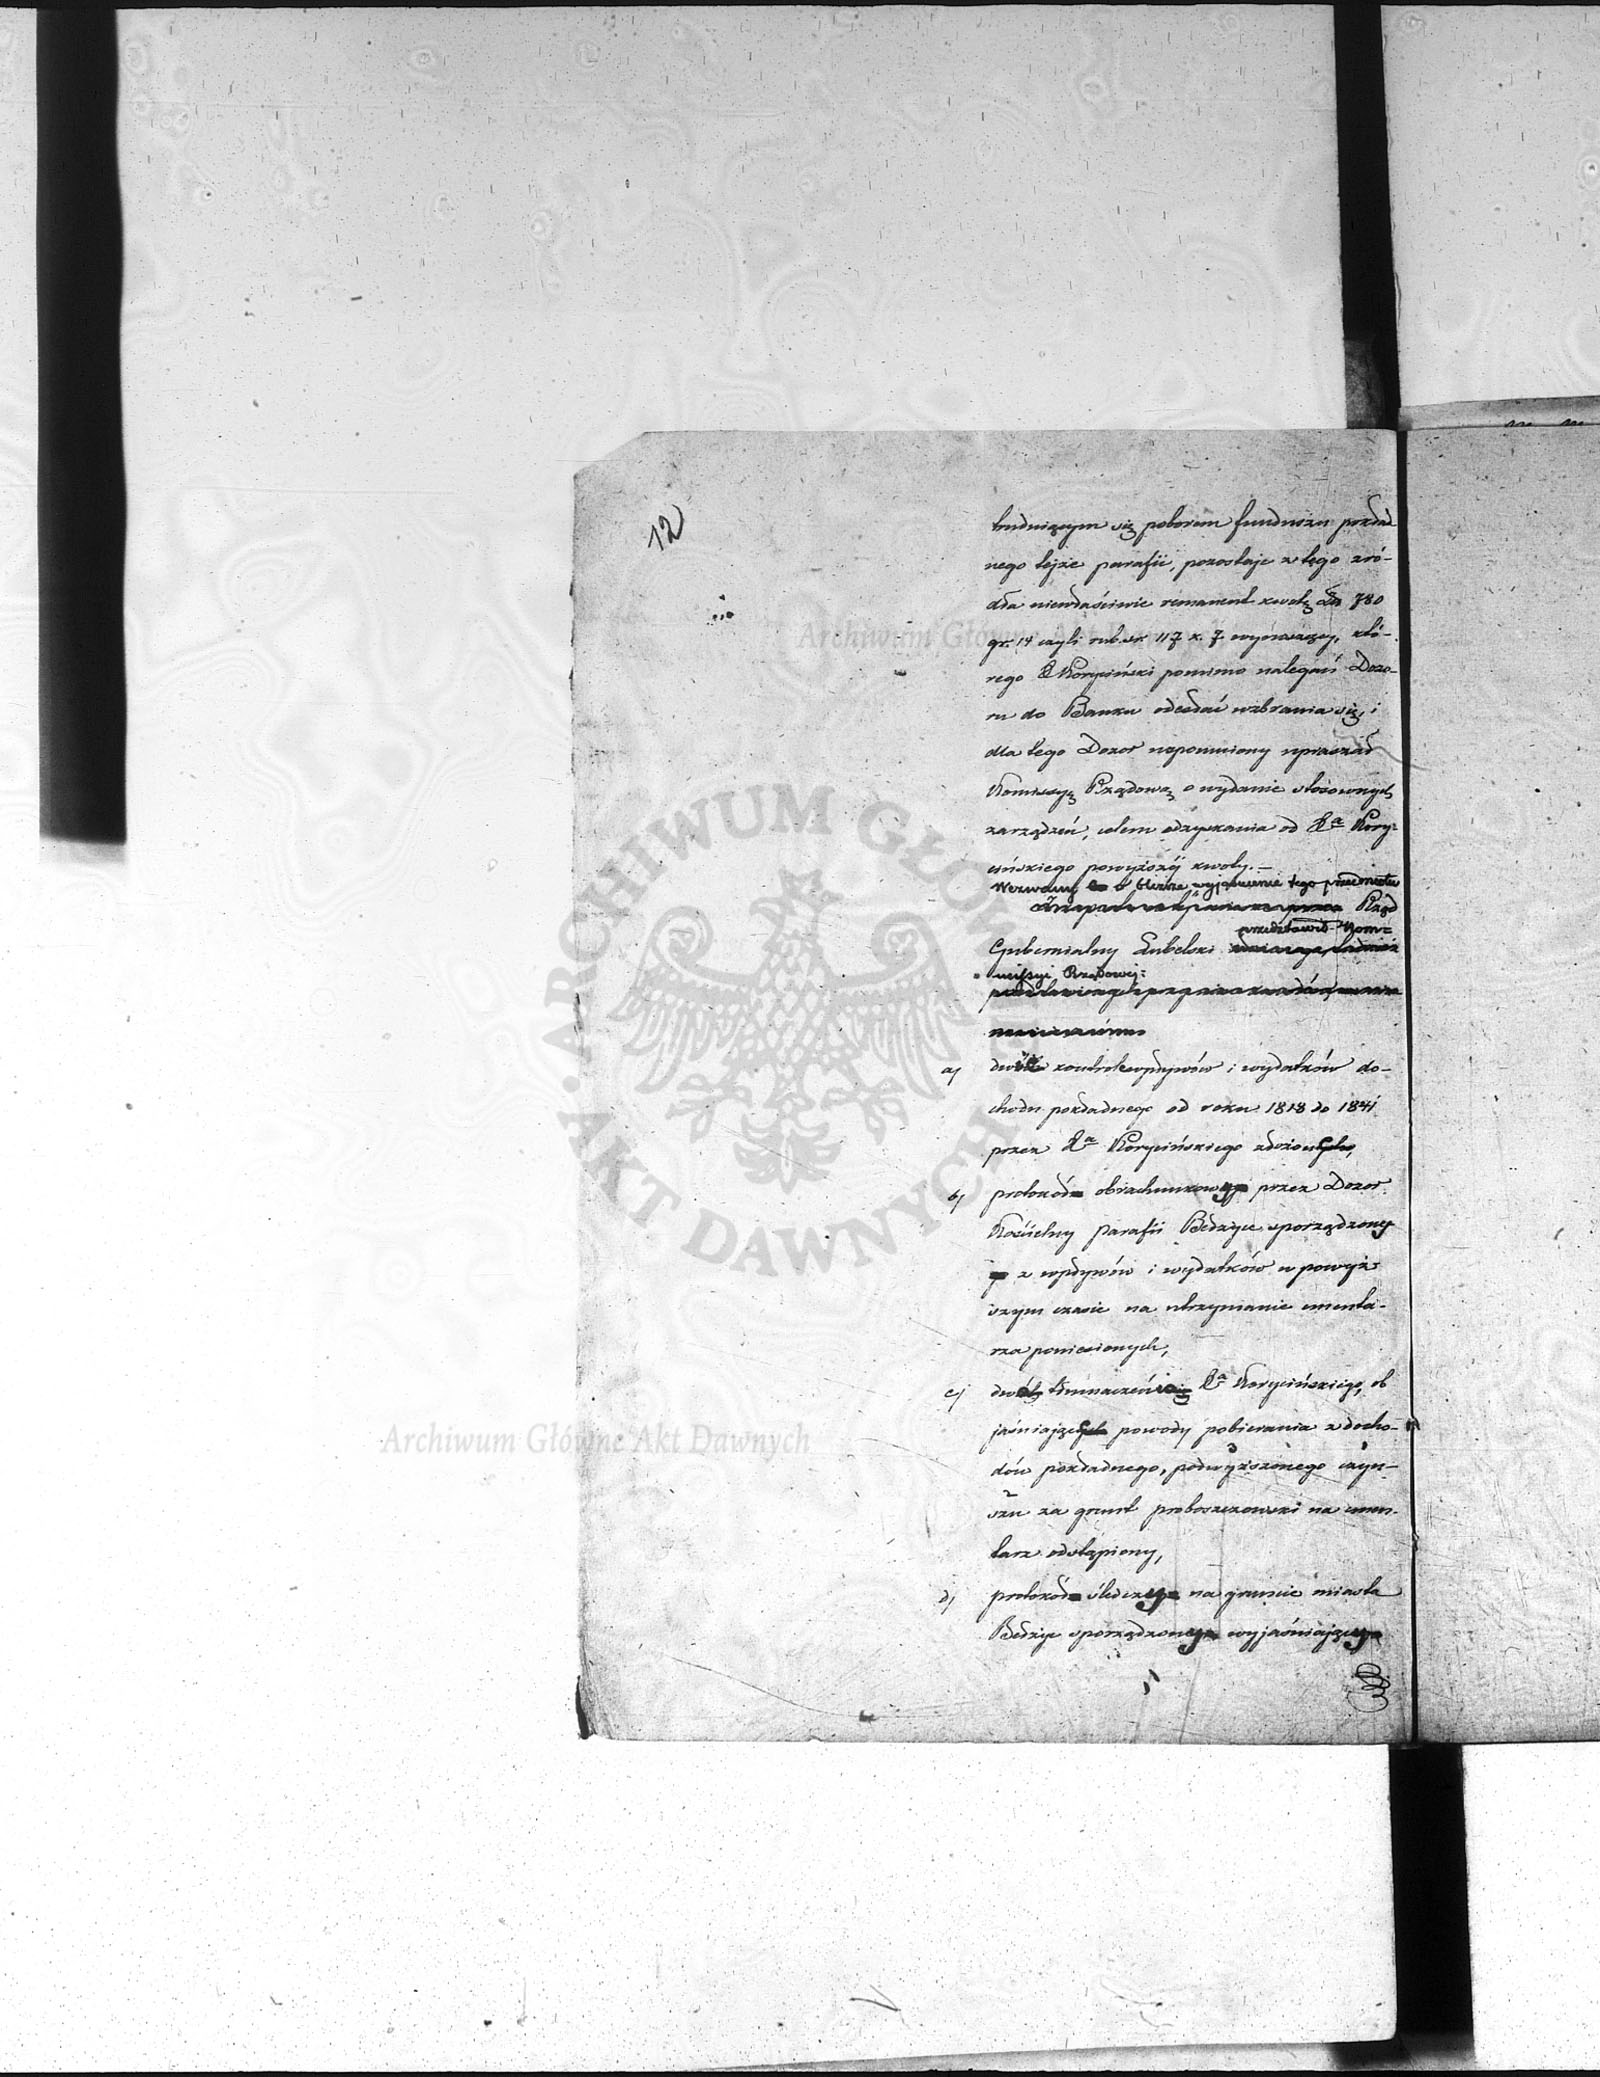 12
trudniącym się poborem funduszu pokład
nego tejże parafii, pozostaje z tego źró-
dła niewłaściwie remanent kwotę Złp 780
gr. 14 czyli rub. sr. 117 k. 7 wynoszący, któ-
rego X Koryciński pomimo nalegań Dozo-
ru do Banku odesłać wzbrania się, i
dla tego Dozor napomniony upraszał
Kommissyę Rządową o wydanie stosownych
zarządzeń, celem odzyskania od Xa Kory-
cińskiego powyższej kwoty.—
Wezwany o bliższe wyjaśnienie tego przedmiotu
Rząd
przedstawił Kom=
Gubernialny Lubelski
missyi Rządowej:
a) dwie kontrole wpływów i wydatków do-
chodu pokładnego od roku 1818 do 1841
przez Xa Korycińskiego złożone,
b) protokół obrachunkowy przez Dozor
Kościelny parafii Bełżyce sporządzony
z wpływów i wydatków w powyż
szym czasie na utrzymanie cmenta-
rza poniesionych,
c) dwa tłumaczenia Xa Korycińskiego, ob
jaśniające powody pobierania z docho-
dów pokładnego, podwyższonego czyn-
szu za grunt proboszczowski na cmen-
tarz odstąpiony,
d) protokół śledczy na gruncie miasta
Bełżyc sporządzony wyjaśniający
Archiwum Główne Akt Dawnych
Archiwum Główne Akt Dawnych
ARCHIWUM GŁÓWNE AKT DAWNYCH